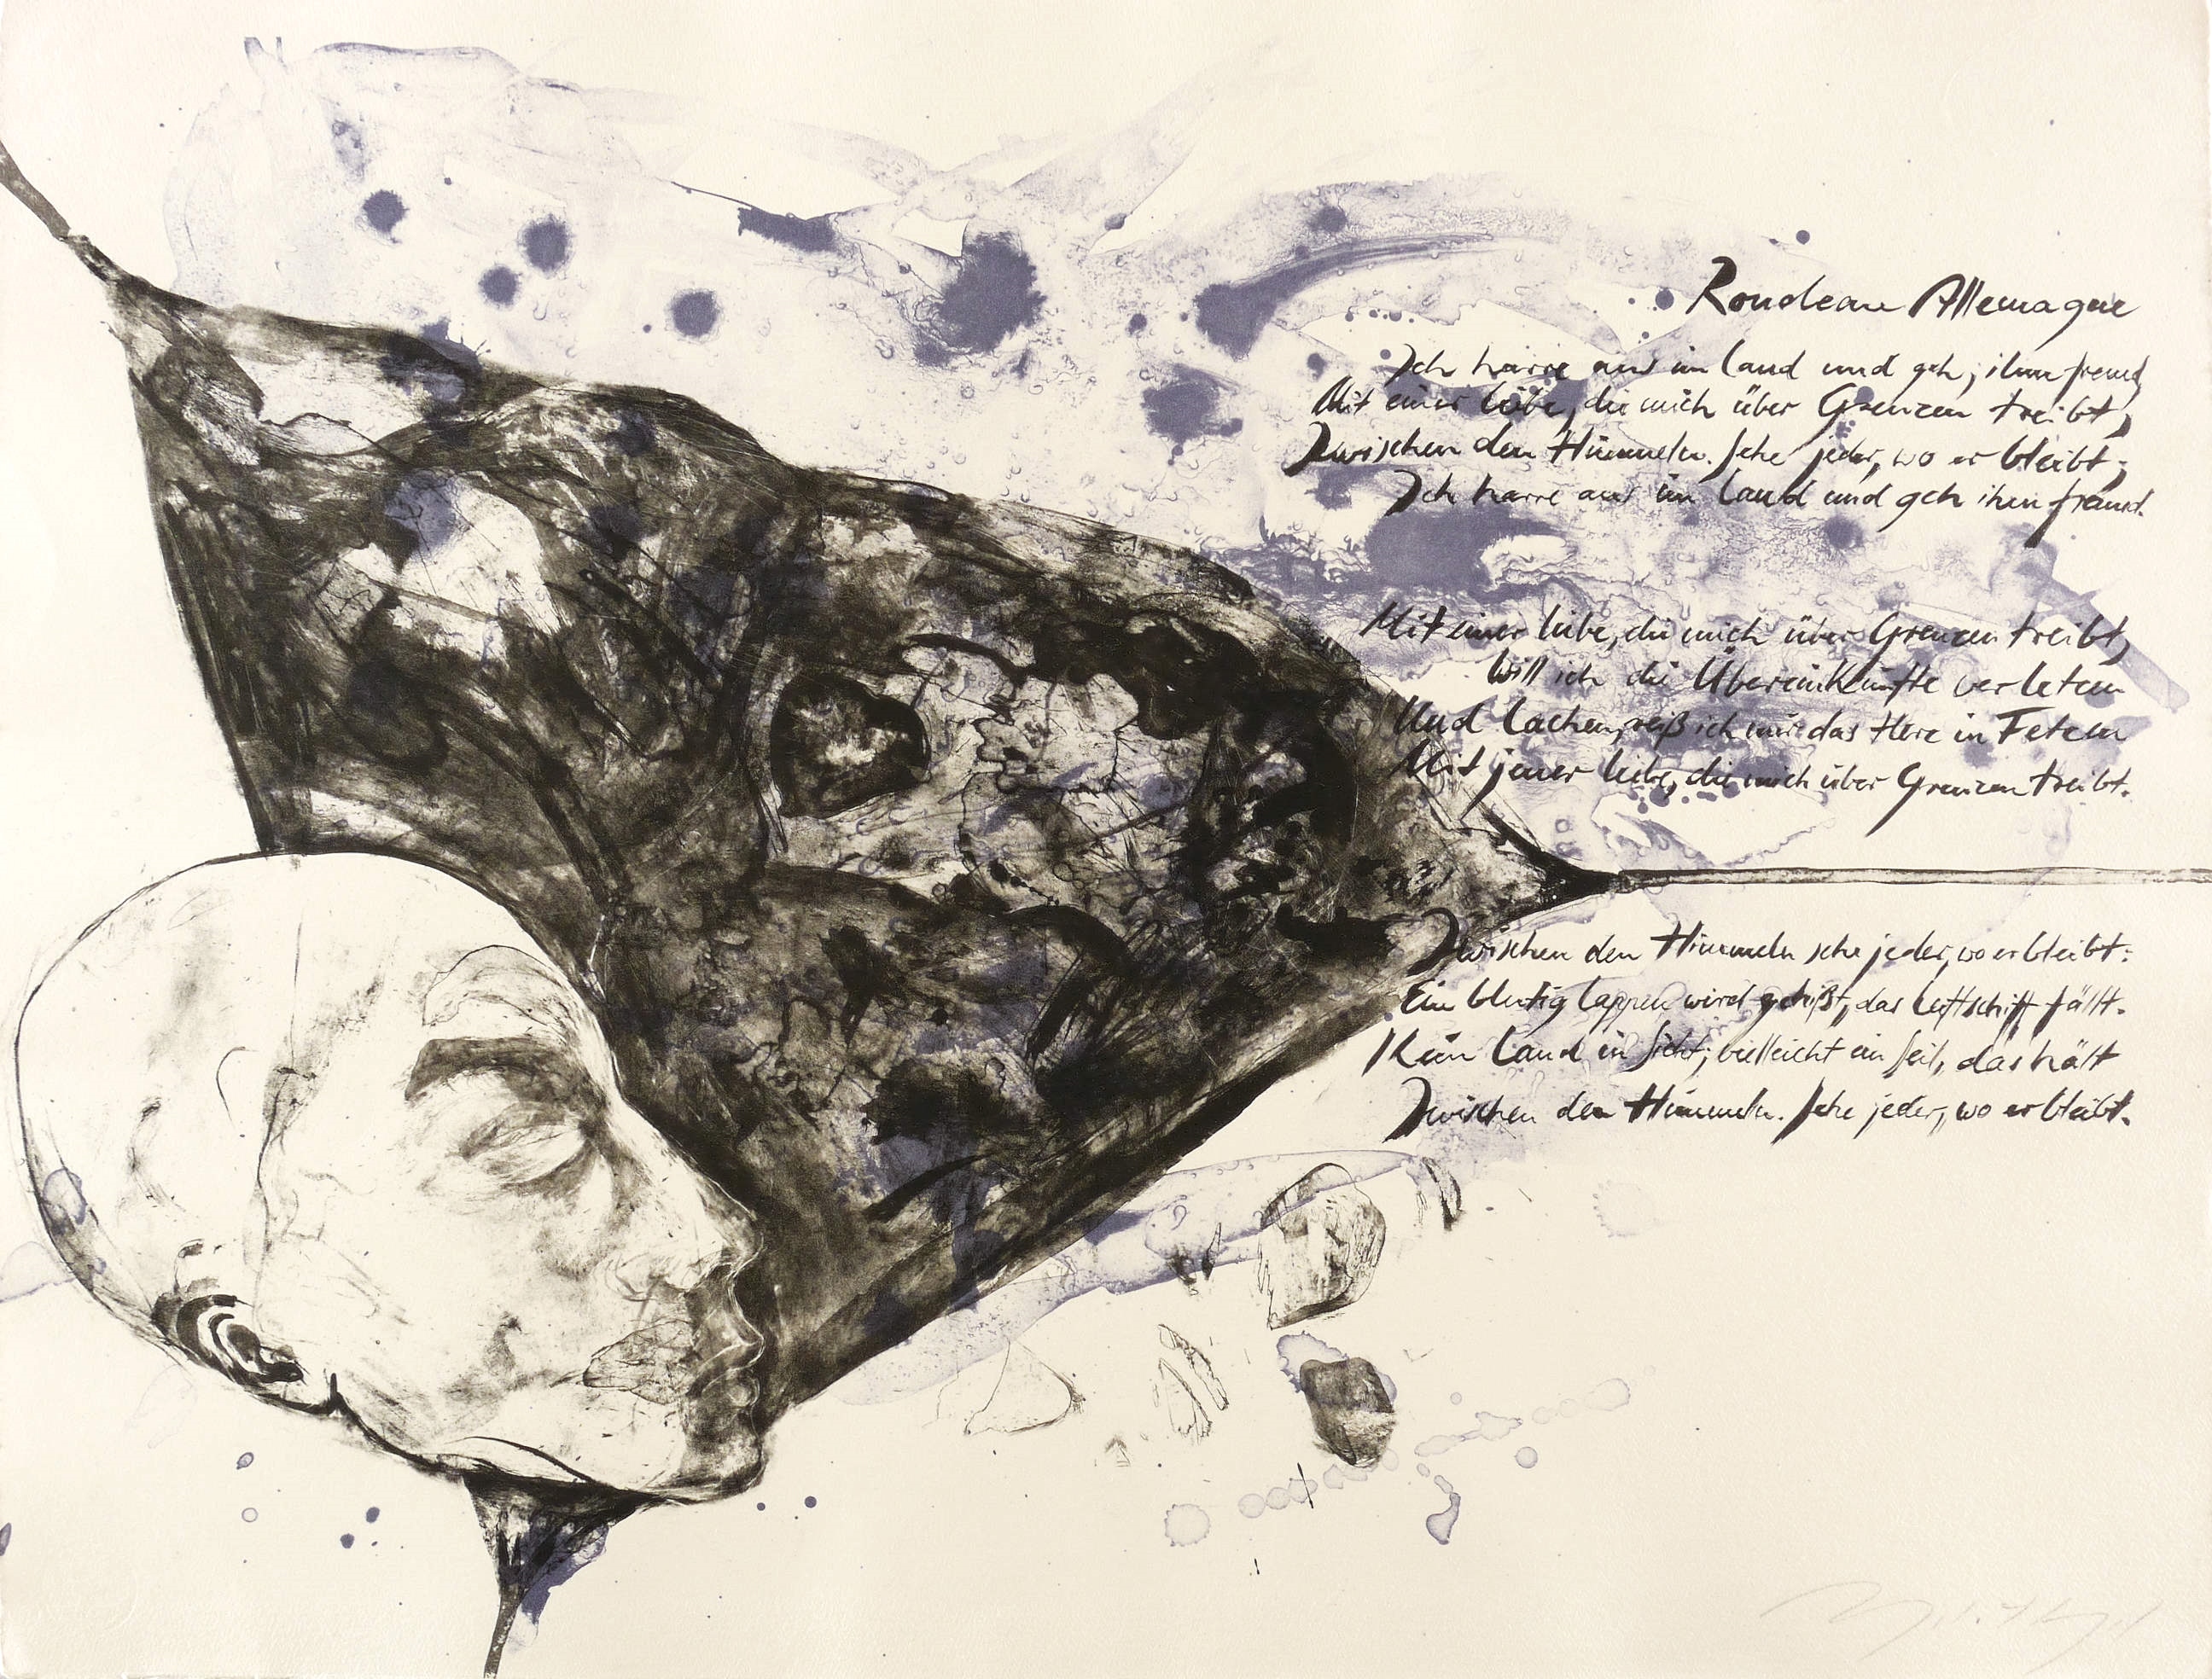 Rondeau Allemagne
Ich harre aus im Land und geh, ihm fremd,
Mit einer Liebe, die mich über Grenzen treibt,
Zwischen den Himmeln. Sehe jeder, wo er bleibt;
Ich harre aus im Land und geh ihm fremd.
Mit einer Liebe, die mich über Grenzen treibt,
Will ich die Übereinkünfte verletzen
Und lachen, reiß ich mir das Herz in Fetzen
Mit jener Liebe, die mich über Grenzen treibt.
Zwischen den Himmeln sehe jeder, wo er bleibt:
Ein blutig Lappen wird gehißt, das Luftschiff fällt.
Kein Land in Sicht; vielleicht ein Seil, das hält
Zwischen den Himmeln. Sehe jeder, wo er bleibt.